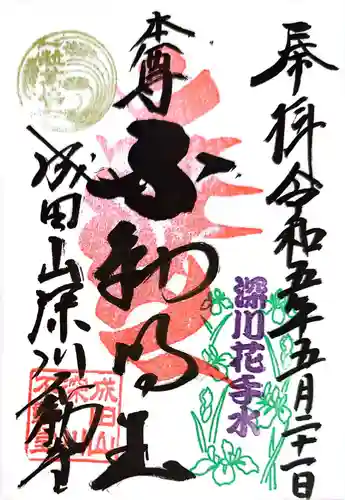 奉拝 令和五年五月二十一日
深川花手水
本尊
不動明王
成田山深川不動堂
成田山
深川
不動堂